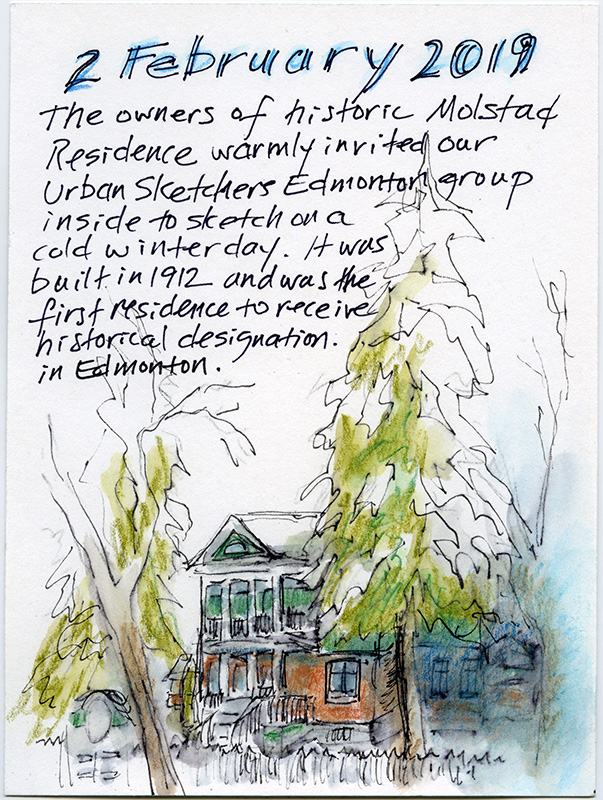 2 February 2019
The owners of historic Molstad
Residence warmly invited our
Urban Sketchers Edmonton group
inside to sketch on a
cold winter day. It was
built in 1912 and was the
first residence to receive
historical designation.
in Edmonton.